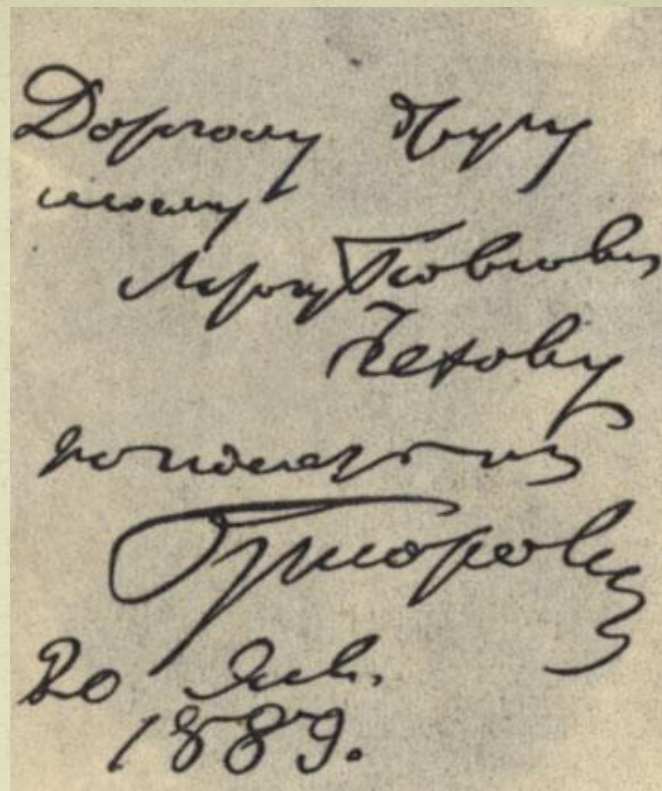 Дорогому другу
моему
Антону Павловичу
Чехову
Григорович
20 Янв.
1889.